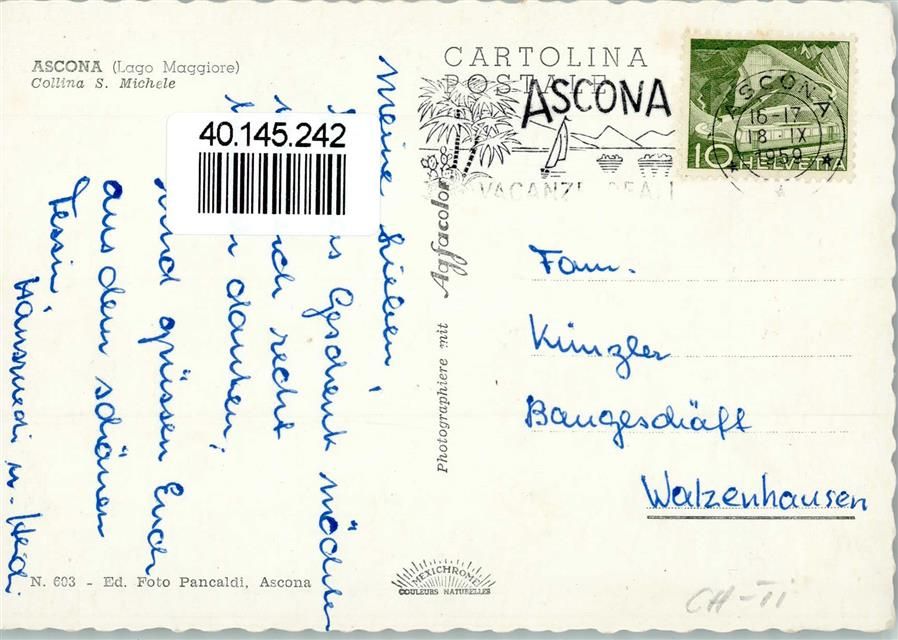 ASCONA (Lago Maggiore)
Collina S. Michele
40.145.242
CARTOLINA
POSTALE
ASCONA
VACANZE
ASCONA
16-17
18 IX
1959
10 HELVETIA
Meine Lieben,
Geschenk möchten
recht
danken;
und grüssen Euch
aus dem schönen
Tessin,
Hansruedi u. Heidi
Photographiere mit Agfacolor
Fam.
Künzler
Baugeschäft
Walzenhausen
N. 603 - Ed. Foto Pancaldi, Ascona
MEXICHROME
COULEURS NATURELLES
CH-TI